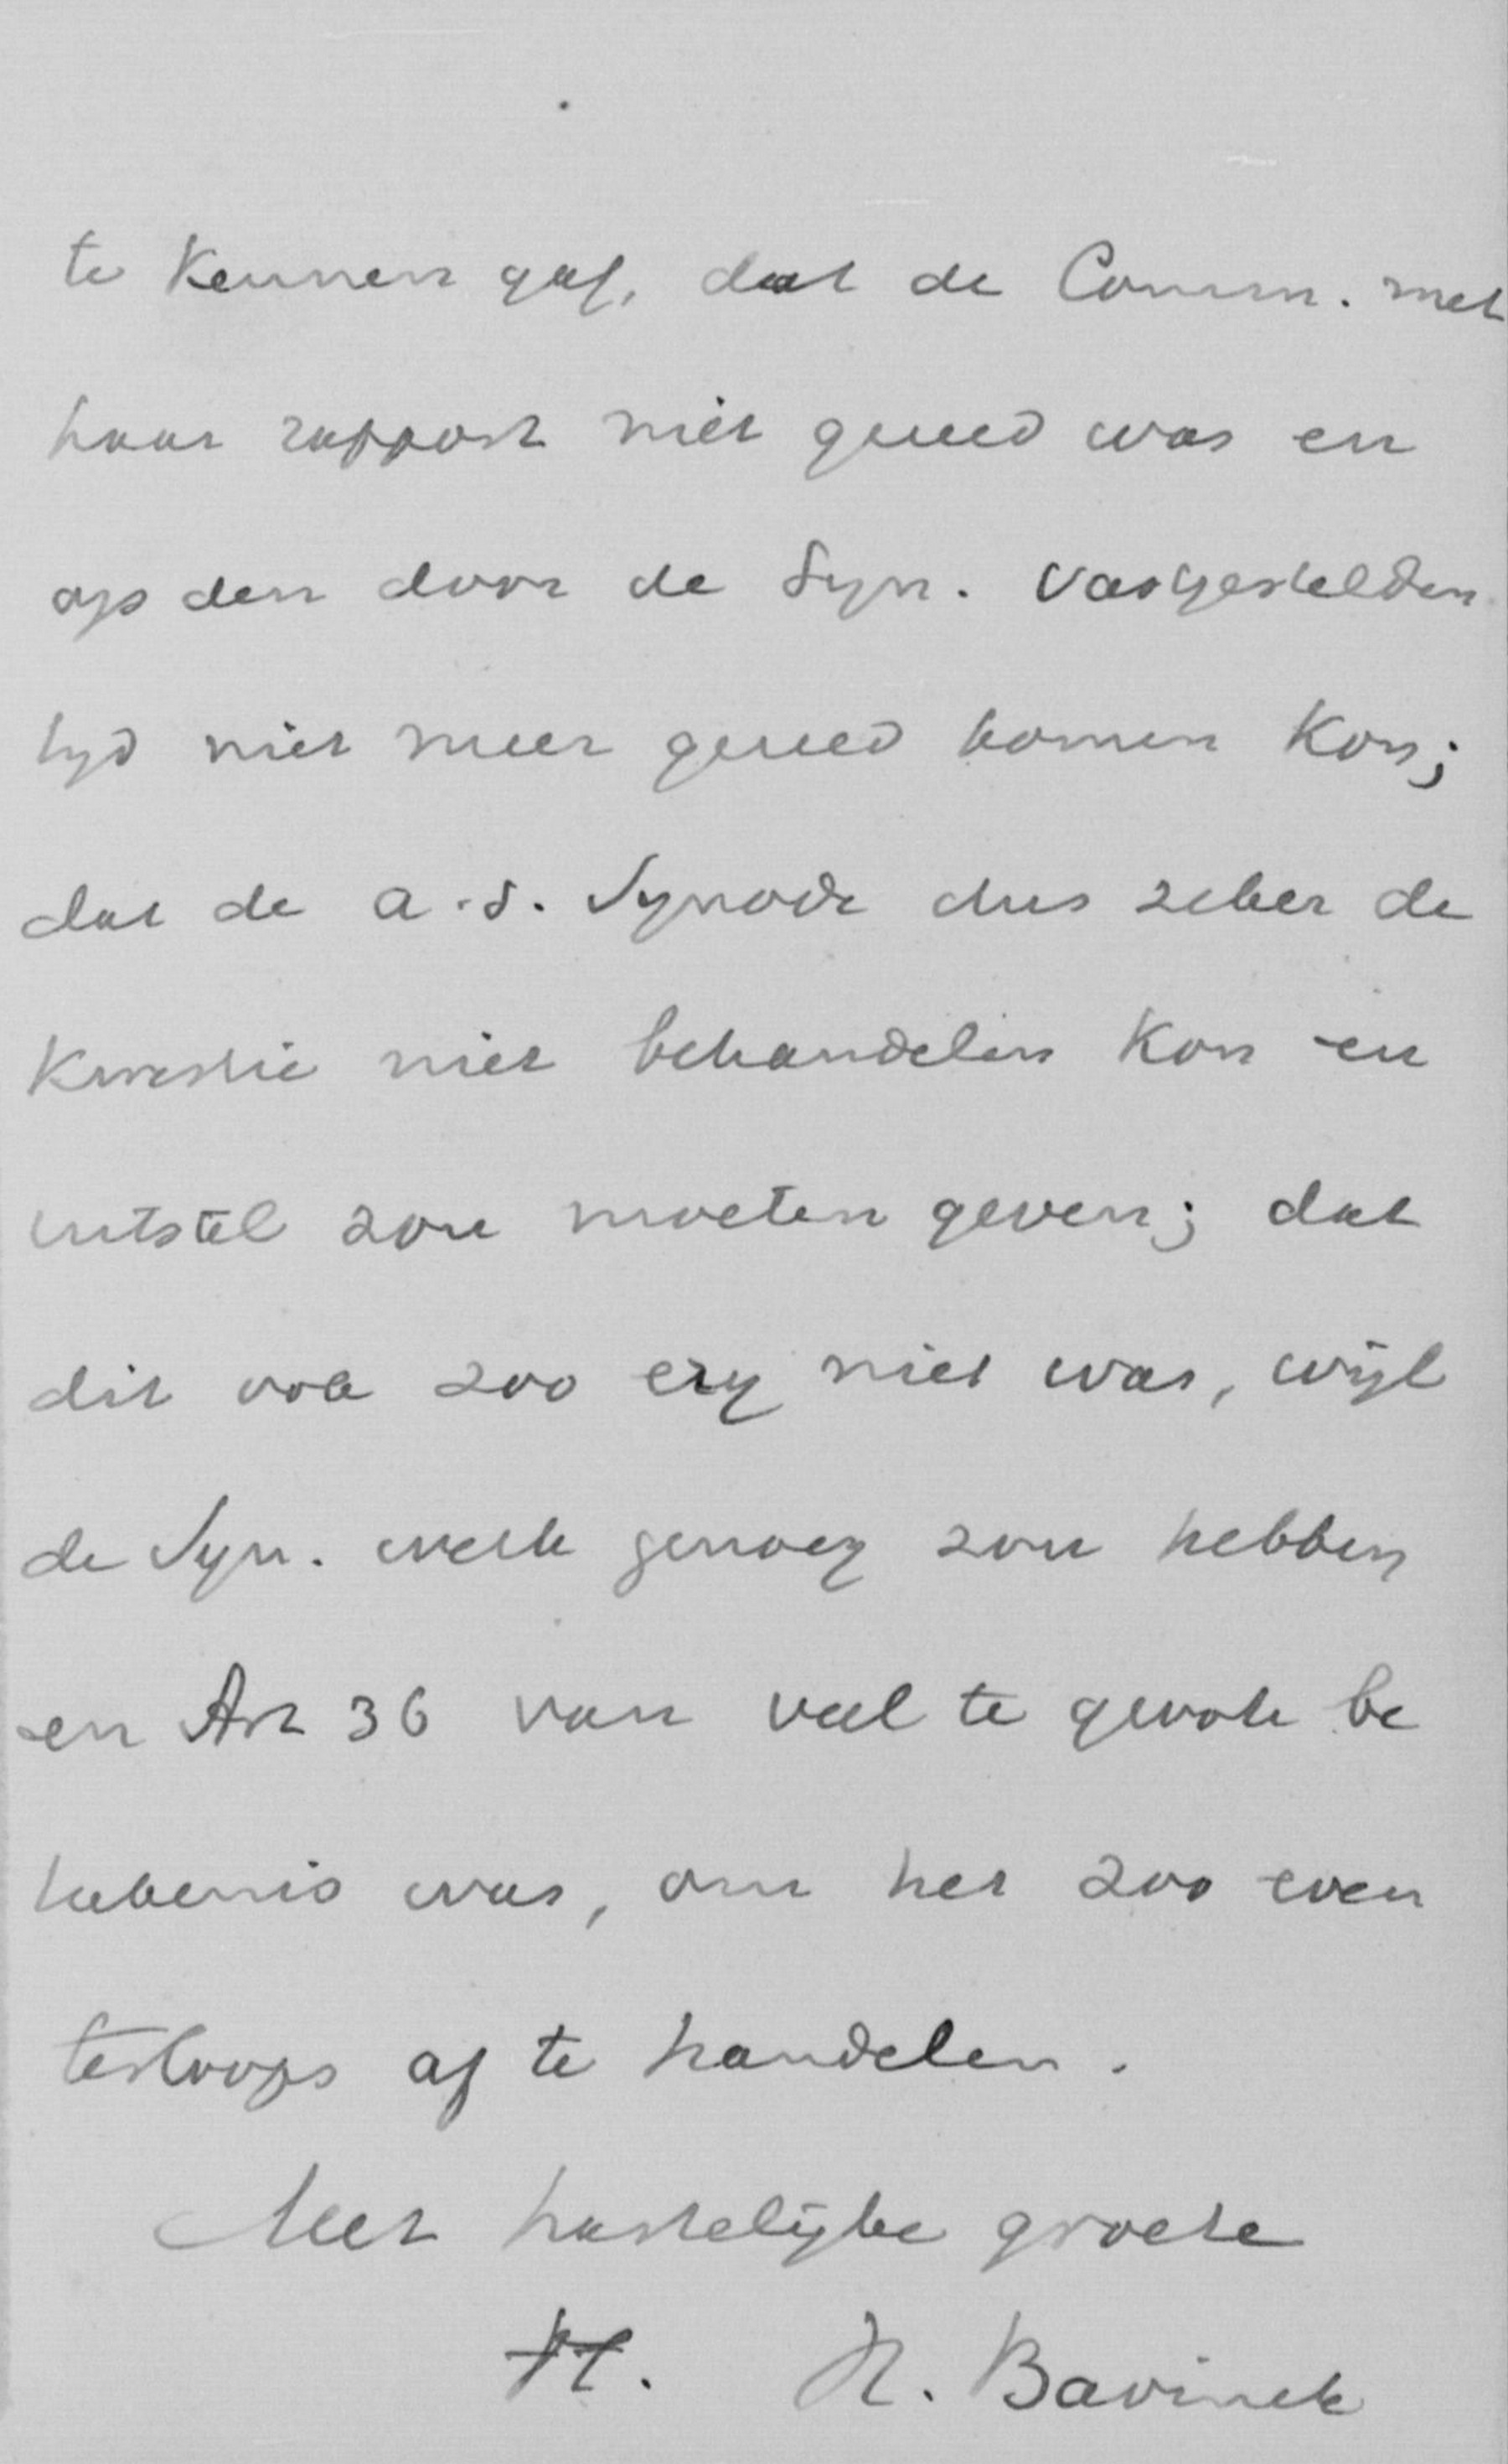 te kennen gaf, dat de Comm. met
haar rapport niet gereed was en
op den door de Syn. vastgestelden
tijd niet meer gereed komen kon;
dat de a.s. Synode dus zeker de
kwestie niet behandelen kon en
uitstel zou moeten geven; dat
dit ook zoo erg niet was, wijl
de Syn. werk genoeg zou hebben
en Art 36 van veel te groote be
teekenis was, om het zoo even
terloops af te handelen.
Met hartelijke groete
tt. H. Bavinck